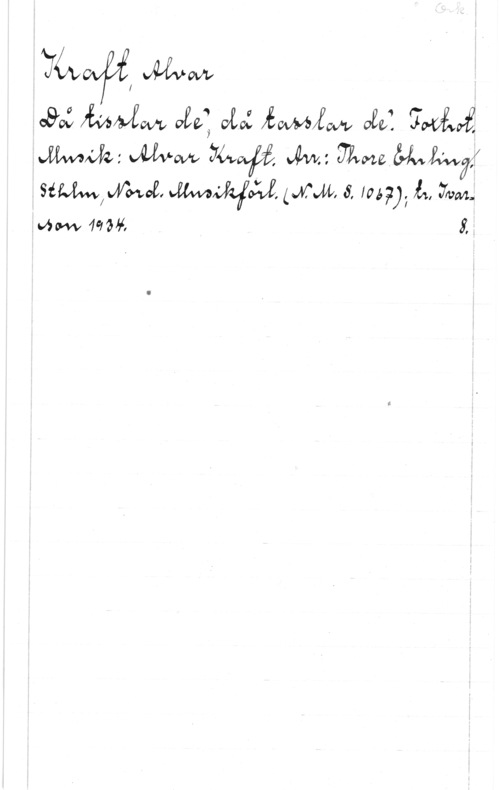 Ork.
Kraft, Alvar
Då tisslar de', då tasslar de'. Foxtrot.
Musik: Alvar Kraft. Arr.: Thore Ehrling.
Sthlm, Nord. Musikförl. (N.M.S. 1067); tr. Ivar-
son 1934. 8.